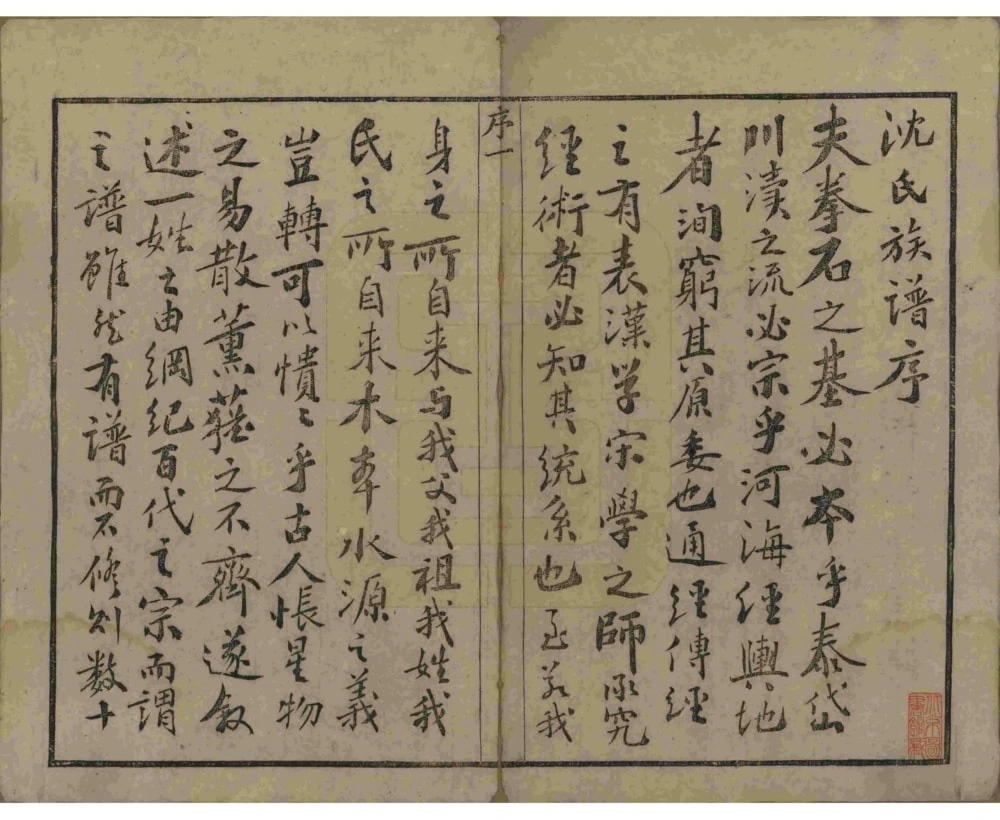 沈氏族譜序
夫拳石之基必本乎泰岱
川瀆之流必宗乎河海經輿地
者洵窮其原委也通經傳經
之有表漢学宗學之師承究
經術者必知其統系也至若我
序一
身之所自来与我父我祖我姓我
氏之所自来木本水源之義
豈轉可以憒〻乎古人悵星物
之易散薰蕕之不齊遂叙
述一姓之由綱紀百代之宗而謂
之譜雖然有譜而不修则数十